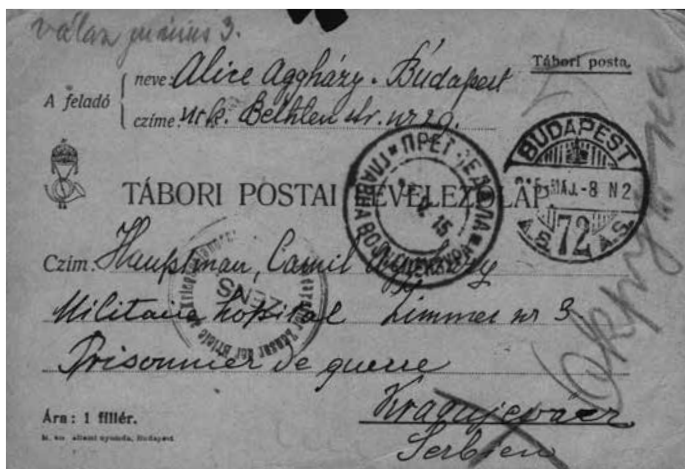 válasz június 3.
Tábori posta.
A feladó
neve: Alice Aggházy. Budapest
czíme: Bethlen
BUDAPEST
915 MÁJ. -8 N 2
72
ПРЕГЛЕДАЛА
ГЛАВНА ВОЈ. ЦЕНЗУРА
15
TÁBORI POSTAI LEVELEZŐLAP
Czím: Hauptman, Camil Aggházy
Militaire hospital Zimmer nr 3.
Prisonnier de guerre
Kragujevácz
Serbien
Ára: 1 fillér.
M. kir. állami nyomda, Budapest